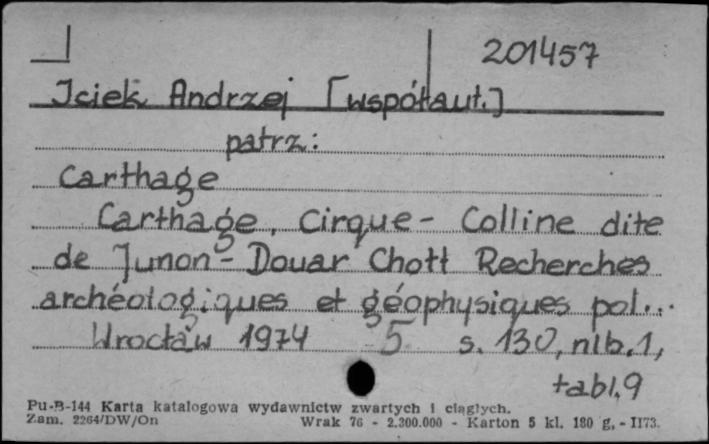 201457
Iciek Andrzej [współaut.]
patrz:
Carthage
Carthage, Cirque - Colline dite
de Junon - Douar Chott Recherches
archéologiques et géophysiques pol...
Wrocław 1974 5 s. 130, nlb. 1,
tabl. 9
Pu-B-144 Karta katalogowa wydawnictw zwartych i ciągłych.
Zam. 2264/DW/On Wrak 76 - 2.300.000 - Karton 5 kl. 180 g. - II73.